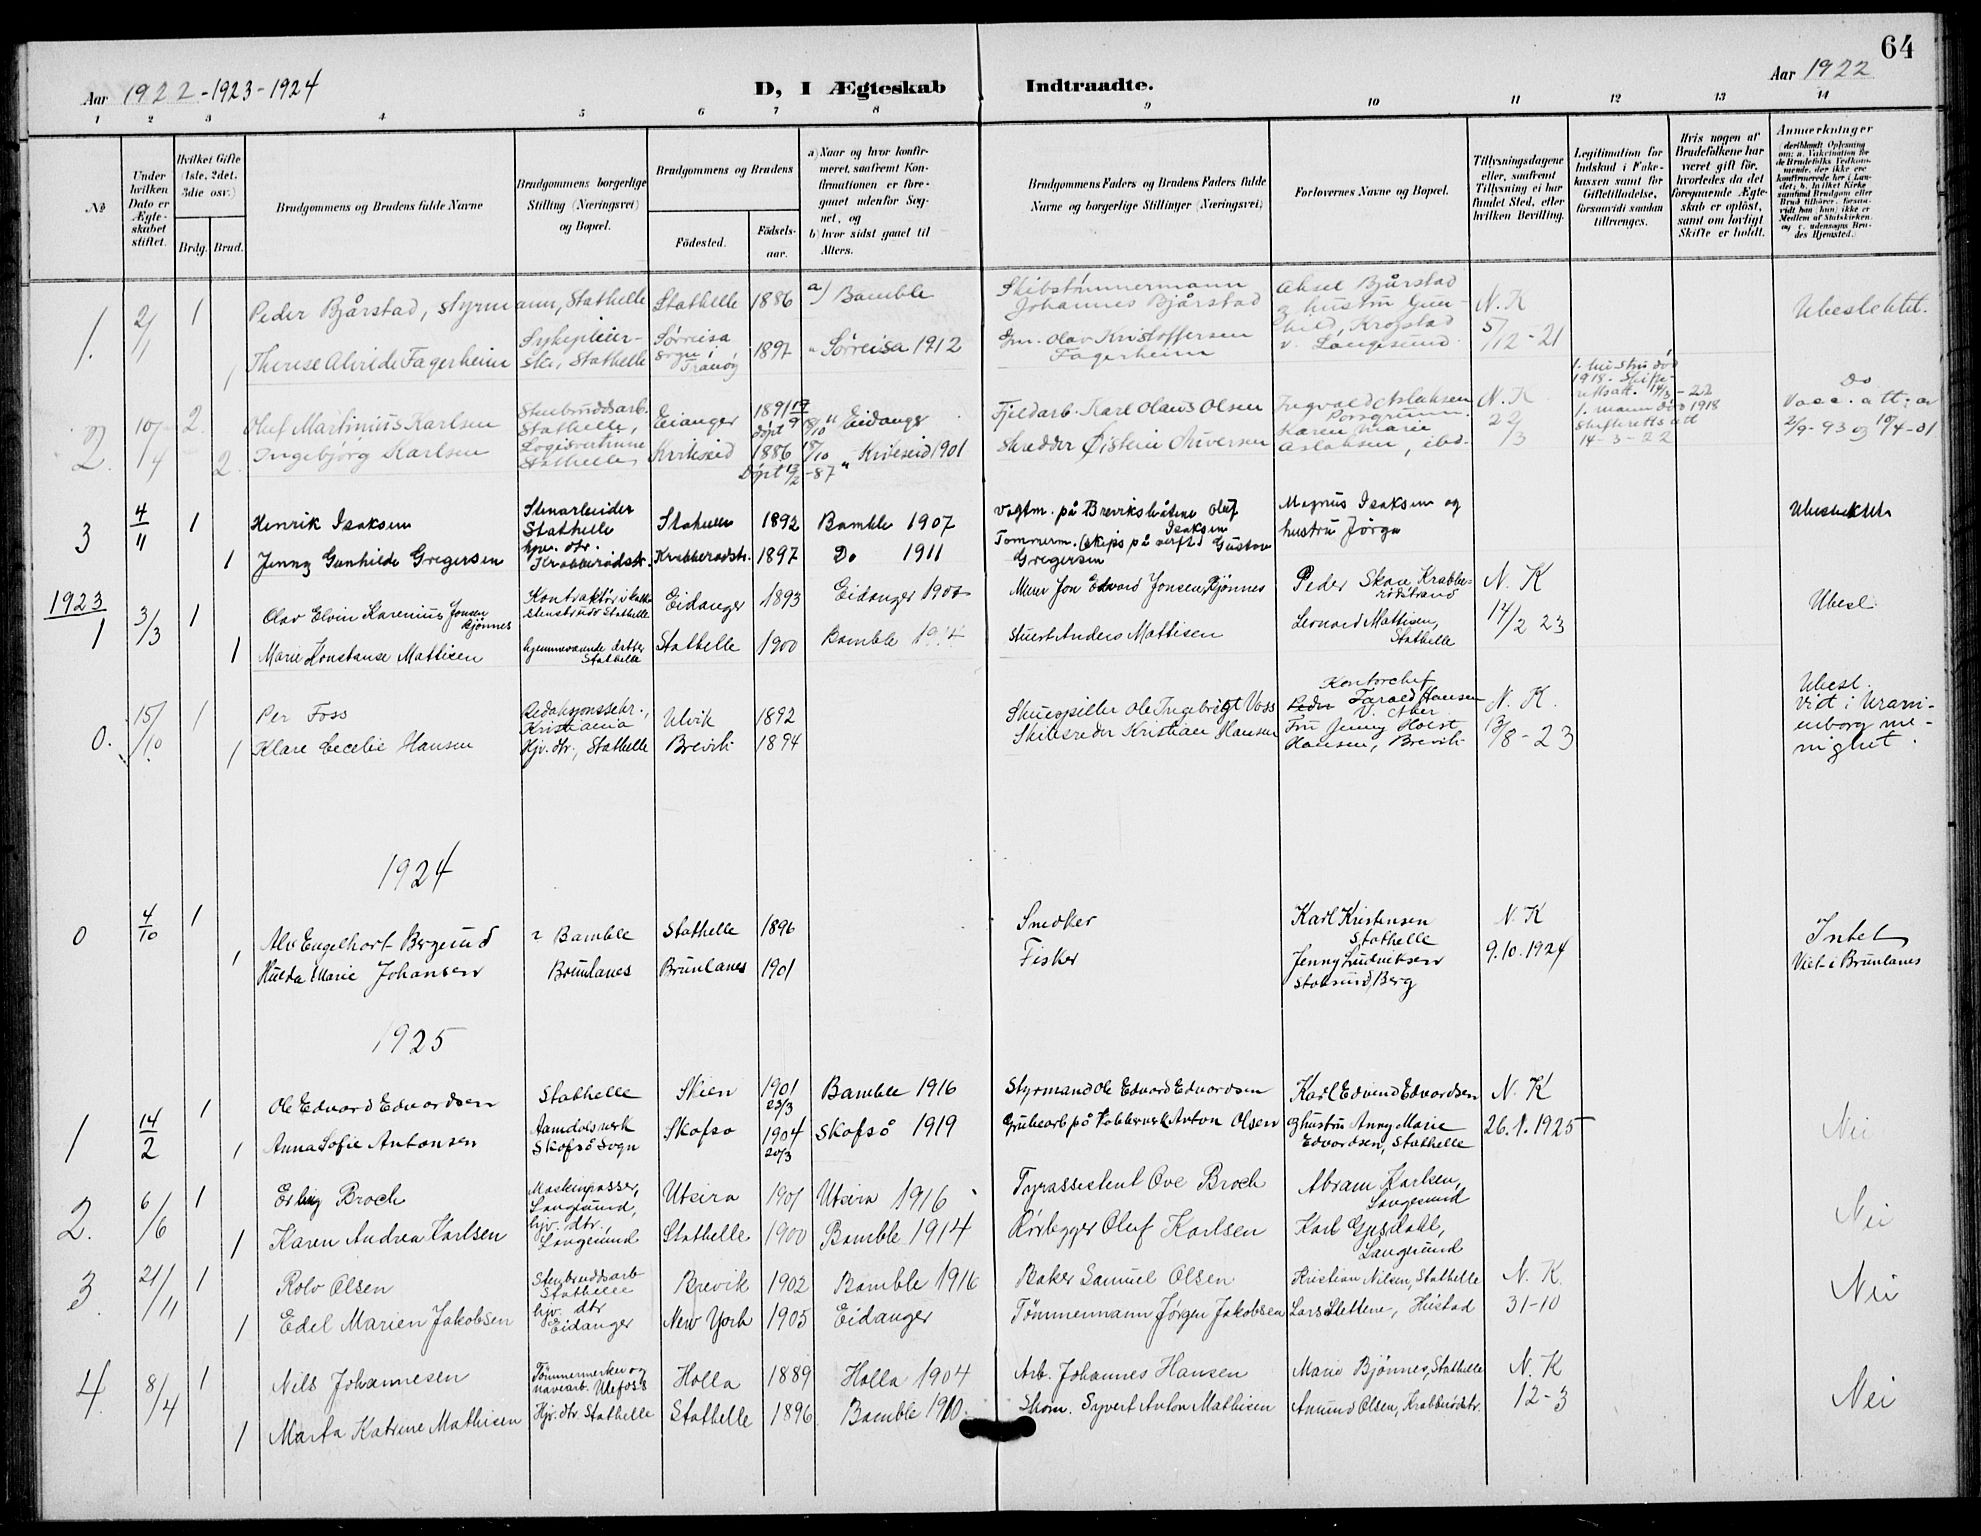 64
Aar 1922-1923-1924
D, I Ægteskab Indtraadte.
Aar 1922
1 2 3 4 5 6 7 8 9 10 11 12 13 14
№
Under hvilken Dato er Ægte-skabet stiftet.
Hvilket Gifte (1ste, 2det, 3die osv.)
Brdg. Brud.
Brudgommens og Brudens fulde Navne
Brudgommens borgerlige Stilling (Næringsvei) og Bopæl.
Brudgommens og Brudens
Fødested.
Fødsels-aar.
a) Naar og hvor konfir-meret, saafremt Kon-firmationen er fore-gaaet udenfor Sog-net, og
b) hvor sidst gaaet til Alters.
Brudgommens Faders og Brudens Faders fulde Navne og borgerlige Stillinger (Næringsvei)
Forlovernes Navne og Bopæl.
Tillysningsdagene eller, saafremt Tillysning ei har fundet Sted, efter hvilken Bevilling.
Legitimation for Indskud i Enke-kassen samt for Giftetilladelse, forsaavidt saadan tiltrænges.
Hvis nogen af Brudefolkene har været gift før, hvorledes da det foregaaende Ægte-skab er opløst, samt om lovligt Skifte er holdt.
Anmærkninger (deriblandt Oplysning om: a. Vakcination for de Brudefolks Vedkom-mende, der ikke ere konfirmerede her i Lan-det; b. hvilket Kirke-samfund Brudgom eller Brud tilhører, forsaa-vidt han (hun) ikke er Medlem af Statskirken, og c. udensogns Bru-des Hjemsted.)
1. 2/1 1 Peder Bjårstad, styrmann, Stathelle Stathelle 1886 a) Bamble Skibstømmermann Johannes Bjårstad Aksel Bjårstad og hustru Gun-hild, Krogstad v. Langesund. N. K 5/12-21 Ubeslektet.
1 Therese Alvilde Fagerheim Sykepleier-ske, Stathelle Sørreisa sogn i Tranøy 1897 " Sørreisa 1912 Gm. Olav Kristoffersen Fagerheim
2. 10/4 2. Oluf Martinius Karlsen Stenbruddsarb. Stathelle, Eianger 1891 19/9 døpt 18/10 " Eidanger Fjeldarb. Karl Olaus Olsen Ingvald Aslaksen Porsgrunn. N. K. 22/3 1. hustru død 1918. Skifte-rettsatt. 14/3-22 Do Vacc. att. av 2/9-93 og 10/4-01
2. Ingebjørg Karlsen Logisvertinne Stathelle Kviteseid 1886 15/10 Døpt 13/2-87 " Kviteseid 1901 Skredder Øistein Aversen Karen Marie Aslaksen, ibd. 1. mann død 1918 skifteretts att 14-3-22
3 4/11 1 Henrik Isaksen Stenarbeider Stathelle Stathelle 1892 Bamble 1907 Vagtm. på Breviksbåtene Oluf Isaksen Magnus Isaksen og hustru Jørga Ubeslektede
1 Jenny Gunhilde Gregersen hjv. dtr. Krabberødstr. Krabberødstr. 1897 Do 1911 Tømmerm. (skips på verft) Gustav Gregersen
1923
1 3/3 1 Olav Elvin Karenius Jonsen Bjønnes Kontraktør i kalkstensbrudd Stathelle Eidanger 1893 Eidanger 1907 Murer Jon Edvard Jonsen Bjønnes Peder Skau, Krabbe-rødstrand N. K 14/2 23 Ubesl.
1 Marie Konstanse Mattisen hjemmeværende datter Stathelle Stathelle 1900 Bamble Stuert Anders Mattisen Leonard Mattisen, Stathelle
0. 15/10. 1 Per Foss Redaksjonssekr., Kristiania Ulvik 1892 Skuespiller Ole Ingebrigt Voss Kontorchef Farald Hansen V. Aker N. K. 13/8-23 Ubesl. Viet i Urani-enborg me-nighet.
1 Klare Cecelie Hansen Hjv. dtr., Stathelle Brevik 1894 Skibsreder Kristian Hansen Fru Jenny Holst Hansen, Brevik
1924
0 4/10 1 Alv Engelhart Berglund ? Bamble Stathelle 1896 Snedker Karl Kristensen Stathelle N. K 9.10.1924 Intet Viet i Brunlanes
1 Hulda Marie Johansen Brunlanes Brunlanes 1901 Fisker Jenny Ludvigsen Stoksund/Berg
1925
1 14/2 1 Ole Edvard Edvardsen Stathelle Skien 1901 23/3 Bamble 1916 Styrmand Ole Edvard Edvardsen Karl Edvind Edvardsen N. K 26.1.1925 Nei
1 Anna Sofie Antonsen Aamdalsverk Skafså Sogn Skafså 1904 20/3 Skafså 1919 Grubearb på Kobberverk Anton Olsen og hustru Anny Marie Edvardsen, Stathelle
2. 6/6 1 Erling Broch Maskinpasser, Langesund, Utsira 1901 Utsira 1916 Fyrassistent Ove Broch Abram Karlsen, Langesund Nei
1 Karen Andrea Karlsen hjv. dtr., Langesund Stathelle 1900 Bamble 1914 Rørlegger Oluf Karlsen Karl Gjesdahl, Langesund
3. 21/11 1 Rolv Olsen Stenbruddsarb Stathelle Brevik 1902 Bamble 1916 Baker Samuel Olsen Kristian Nilsen, Stathelle N. K. 31-10 Nei
1 Edel Marien Jakobsen hjv. dtr Eidanger New York 1905 Eidanger Tömmermann Jørgen Jakobsen Lars Slettene, Hustad
4. 8/4 1 Nils Johannesen Tømmermerker og navearb. Ulefoss Holla 1889 Holla 1904 Arb. Johannes Hansen Marie Bjønnes, Stathelle N. K 12-3 Nei
1 Marta Katrine Mathisen Hjv. dtr. Stathelle Stathelle 1896 Bamble 1910. Skom. Syvert Anton Mathisen Amund Olsen, Krabberødstr.